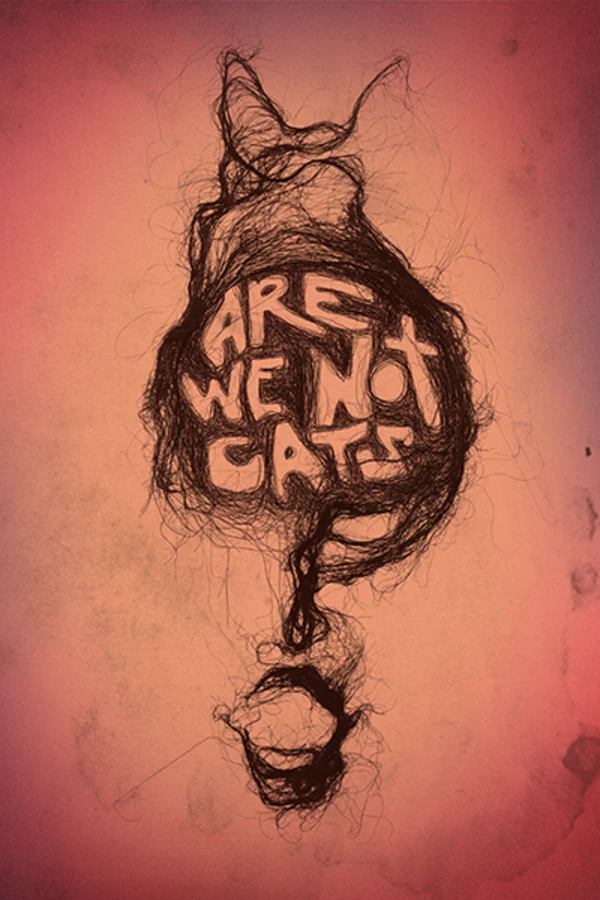 ARE
WE NOt
CATS